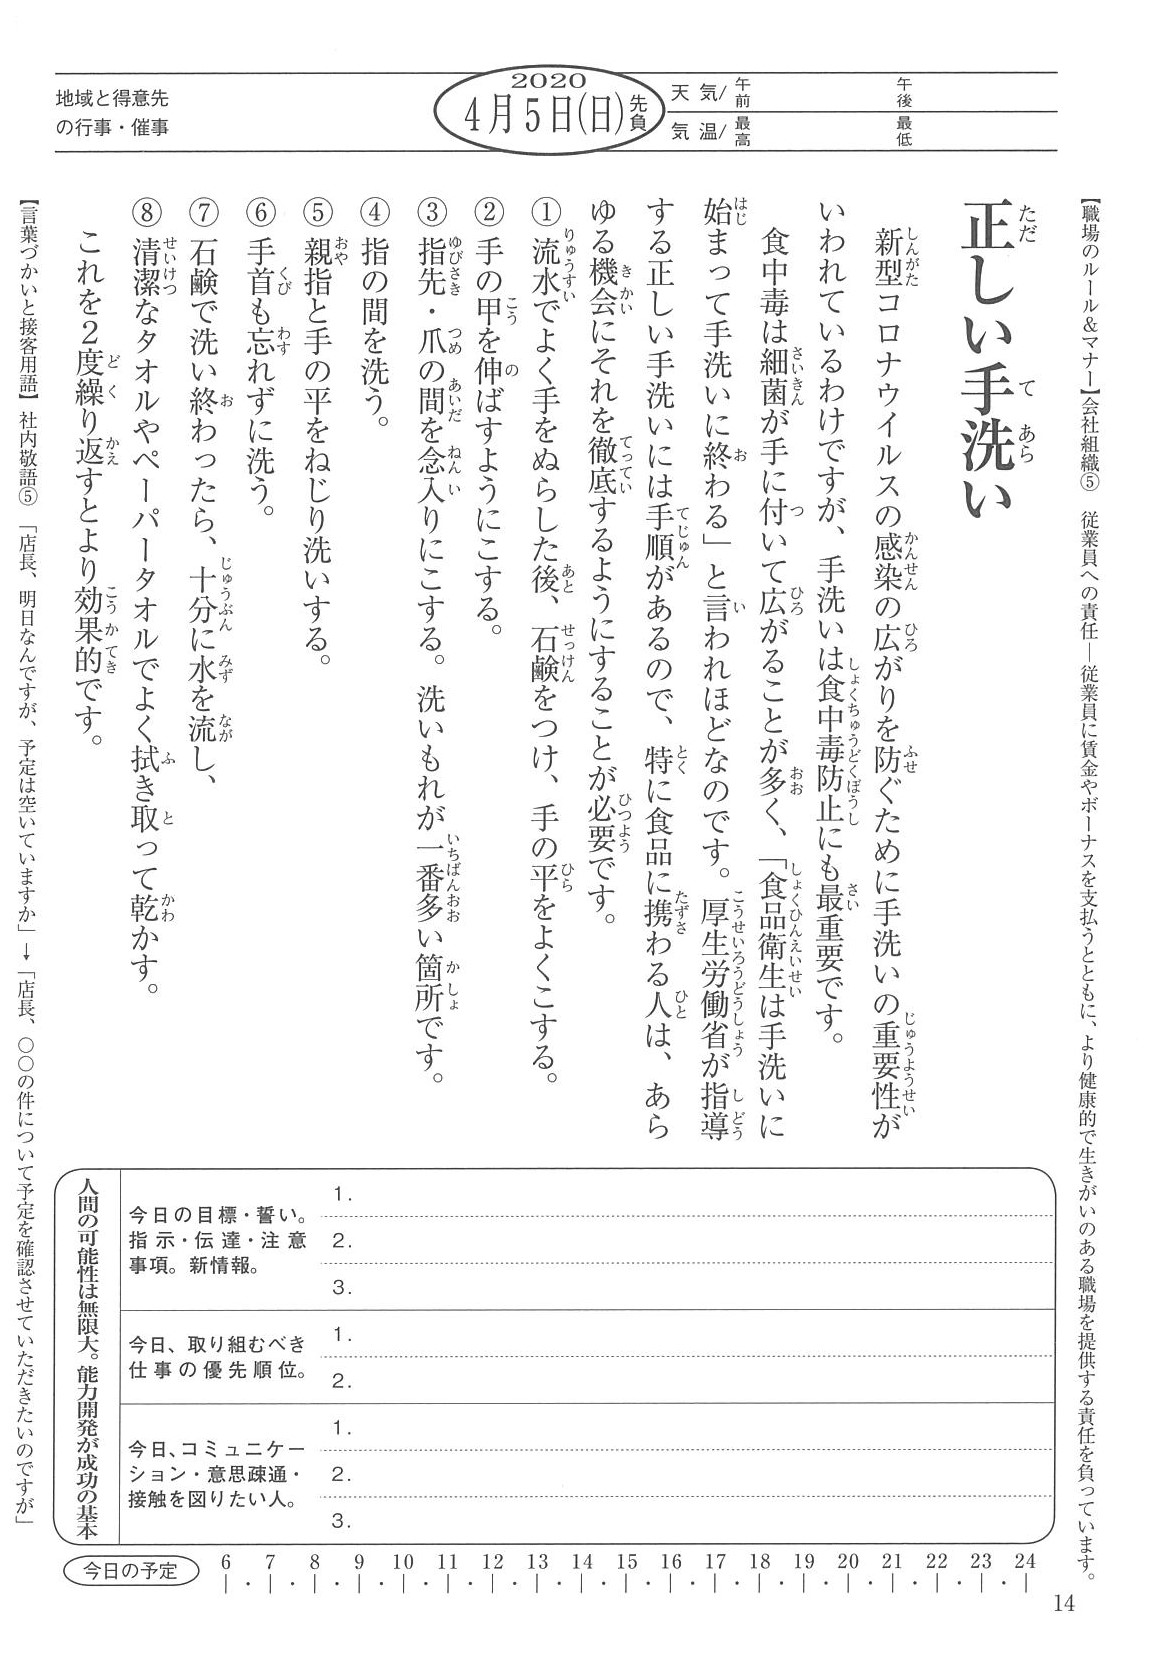 地域と得意先
の行事・催事
2020
4月5日(日)先負
天気/午前 午後
気温/最高 最低
【職場のルール&マナー】会社組織⑤ 従業員への責任―従業員に賃金やボーナスを支払うとともに、より健康的で生きがいのある職場を提供する責任を負っています。
正しい手洗い
新型コロナウイルスの感染の広がりを防ぐために手洗いの重要性が
いわれているわけですが、手洗いは食中毒防止にも最重要です。
食中毒は細菌が手に付いて広がることが多く、「食品衛生は手洗いに
始まって手洗いに終わる」と言われほどなのです。厚生労働省が指導
する正しい手洗いには手順があるので、特に食品に携わる人は、あら
ゆる機会にそれを徹底するようにすることが必要です。
①流水でよく手をぬらした後、石鹸をつけ、手の平をよくこする。
②手の甲を伸ばすようにこする。
③指先・爪の間を念入りにこする。洗いもれが一番多い箇所です。
④指の間を洗う。
⑤親指と手の平をねじり洗いする。
⑥手首も忘れずに洗う。
⑦石鹸で洗い終わったら、十分に水を流し、
⑧清潔なタオルやペーパータオルでよく拭き取って乾かす。
これを2度繰り返すとより効果的です。
【言葉づかいと接客用語】社内敬語⑤ 「店長、明日なんですが、予定は空いていますか」→「店長、〇〇の件について予定を確認させていただきたいのですが」
人間の可能性は無限大。能力開発が成功の基本
今日の目標・誓い。
指示・伝達・注意
事項。新情報。
1.
2.
3.
今日、取り組むべき
仕事の優先順位。
1.
2.
今日、コミュニケー
ション・意思疎通・
接触を図りたい人。
1.
2.
3.
今日の予定 6 7 8 9 10 11 12 13 14 15 16 17 18 19 20 21 22 23 24
14